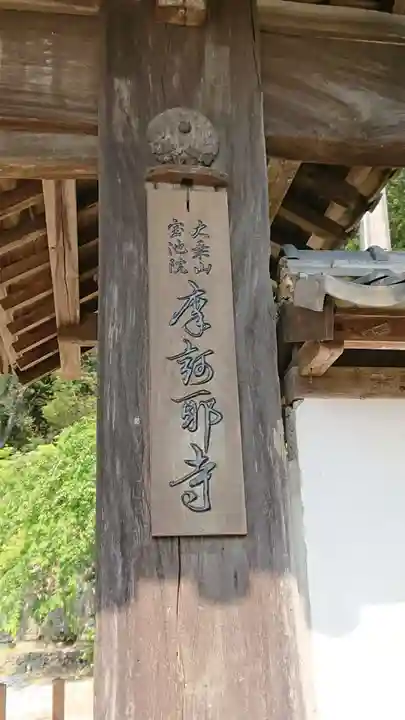 大乗山
宝池院
摩訶耶寺